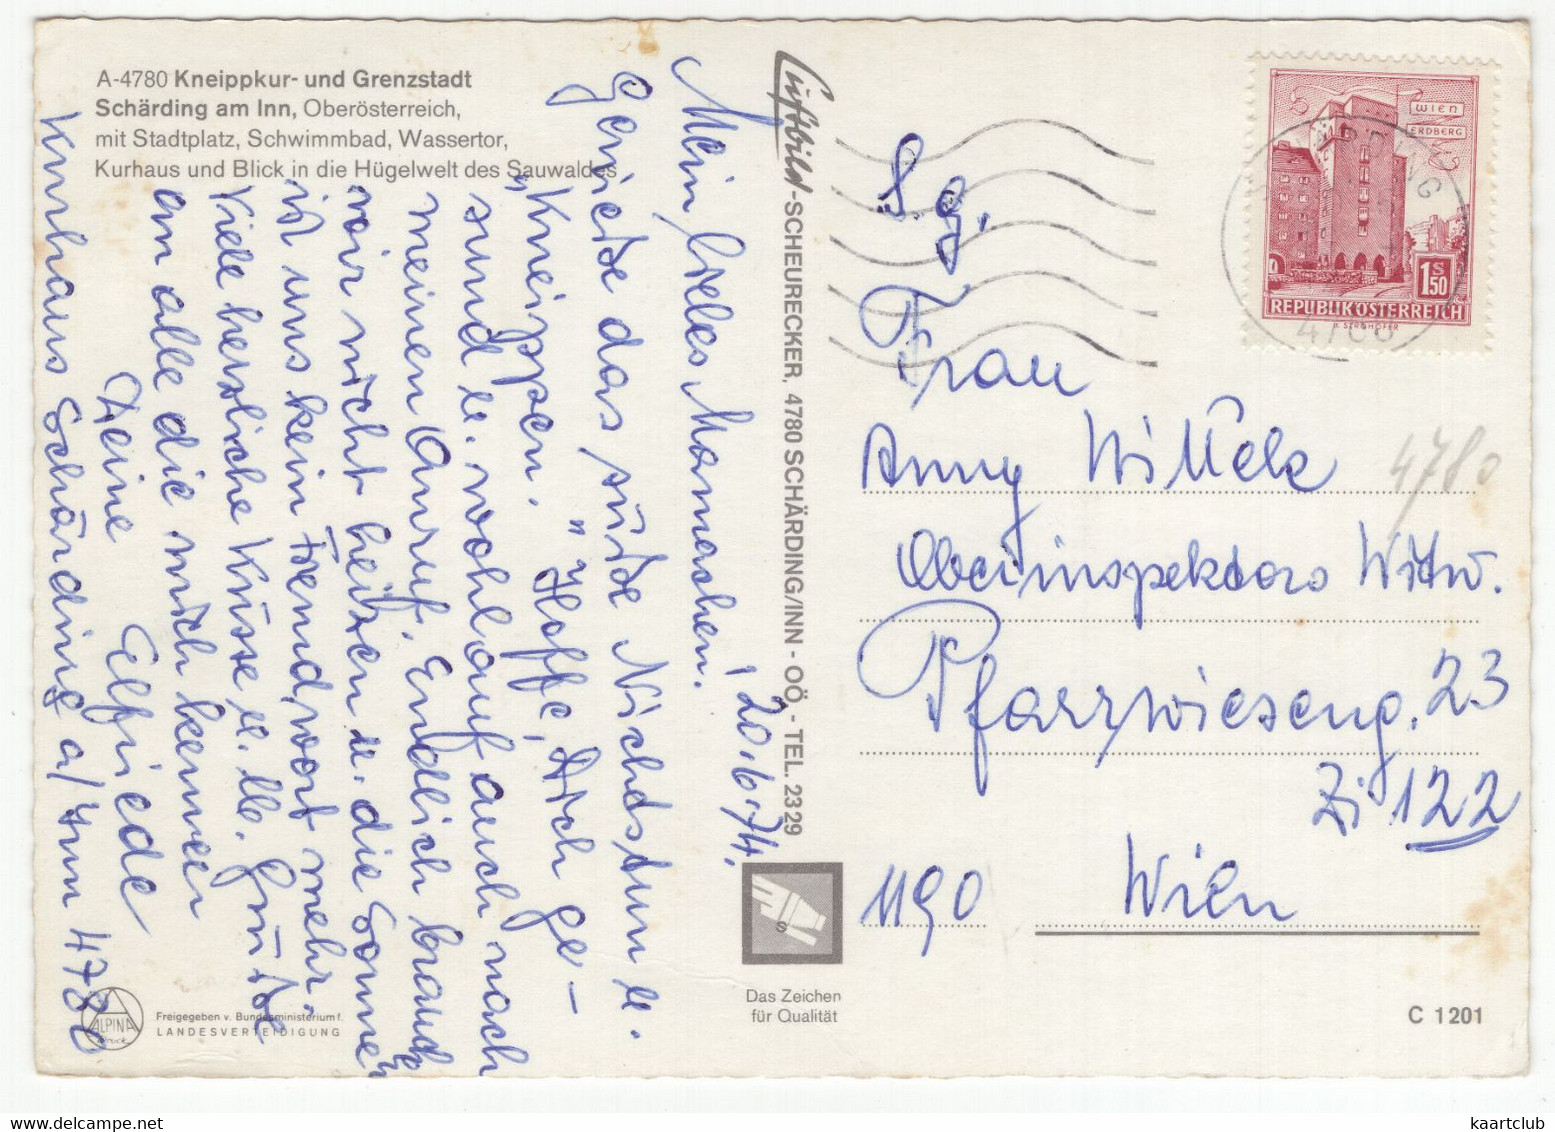 A-4780 Kneippkur- und Grenzstadt
Schärding am Inn, Oberösterreich,
mit Stadtplatz, Schwimmbad, Wassertor,
Kurhaus und Blick in die Hügelwelt des Sauwaldes
, 20.6.74.
Mein liebes Mamachen!
Genieße das süße Nichtstun u.
"Kneippen." Hoffe, Dich ge-
sund u. wohlauf auch nach
meinen Anruf. Endlich brauch
wir nicht heitzen u. die Sonne
ist uns kein Fremdwort mehr.
Viele herzliche Küsse u. lb. Grüße
an alle die mich kennen
Deine Elfriede
Kurhaus Schärding a/Inn 4780
Luftbild-SCHEURECKER, 4780 SCHÄRDING/INN - OÖ, - TEL. 2329
Das Zeichen
für Qualität
ALPINA
Druck
Freigegeben v. Bundesministerium f.
LANDESVERTEIDIGUNG
WIEN
ERDBERG
1 S 50
REPUBLIK ÖSTERREICH
4780
S. g.
Frau
Anny Wittek
4780
Oberinspektors Witw.
Pfarrwieseng. 23
Zi 122
1190 Wien
C 1201
kaartclub